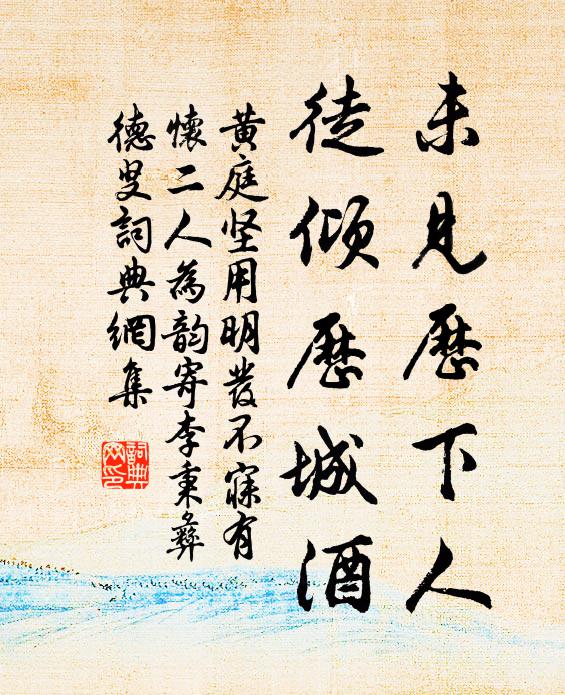 未見歷下人
徒倾歷城酒
黄庭坚用明發不寐有
懷二人為韵寄李秉彝
德叟詞典網集
詞典
网印